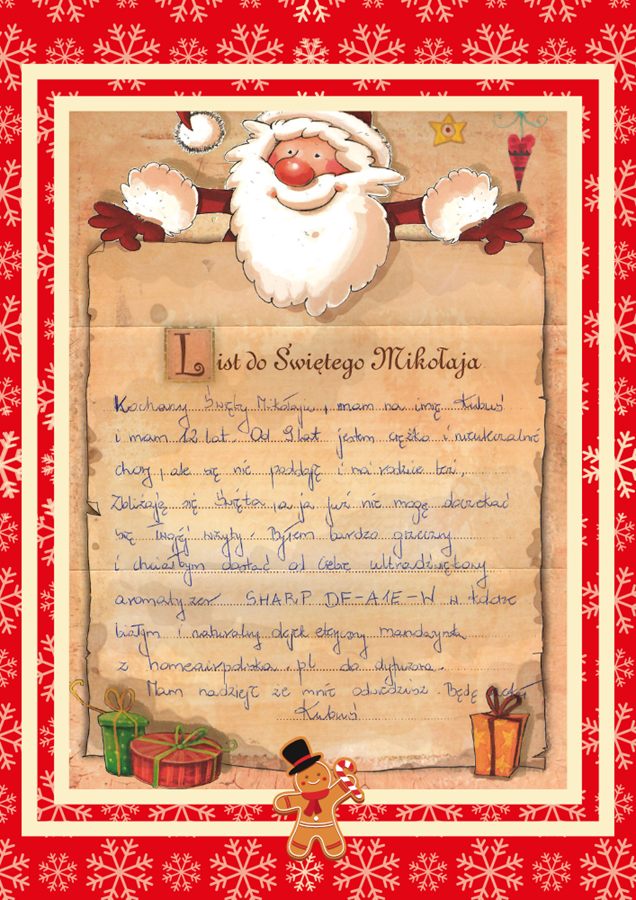 List do Świętego Mikołaja
Kochany Święty Mikołaju, mam na imię Kubuś
i mam 12 lat. Od 9 lat jestem ciężko i nieuleczalnie
chory, ale się nie poddaję i moi rodzice też.
Zbliżają się Święta, a ja już nie mogę doczekać
się Twojej wizyty. Byłem bardzo grzeczny
i chciałbym dostać od Ciebie ultradźwiękowy
aromatyzer SHARP DF-A1E-W w kolorze
białym i naturalny olejek eteryczny mandarynka
z homeairpolska.pl do dyfuzora.
Mam nadzieję że mnie odwiedzisz. Będę
Kubuś